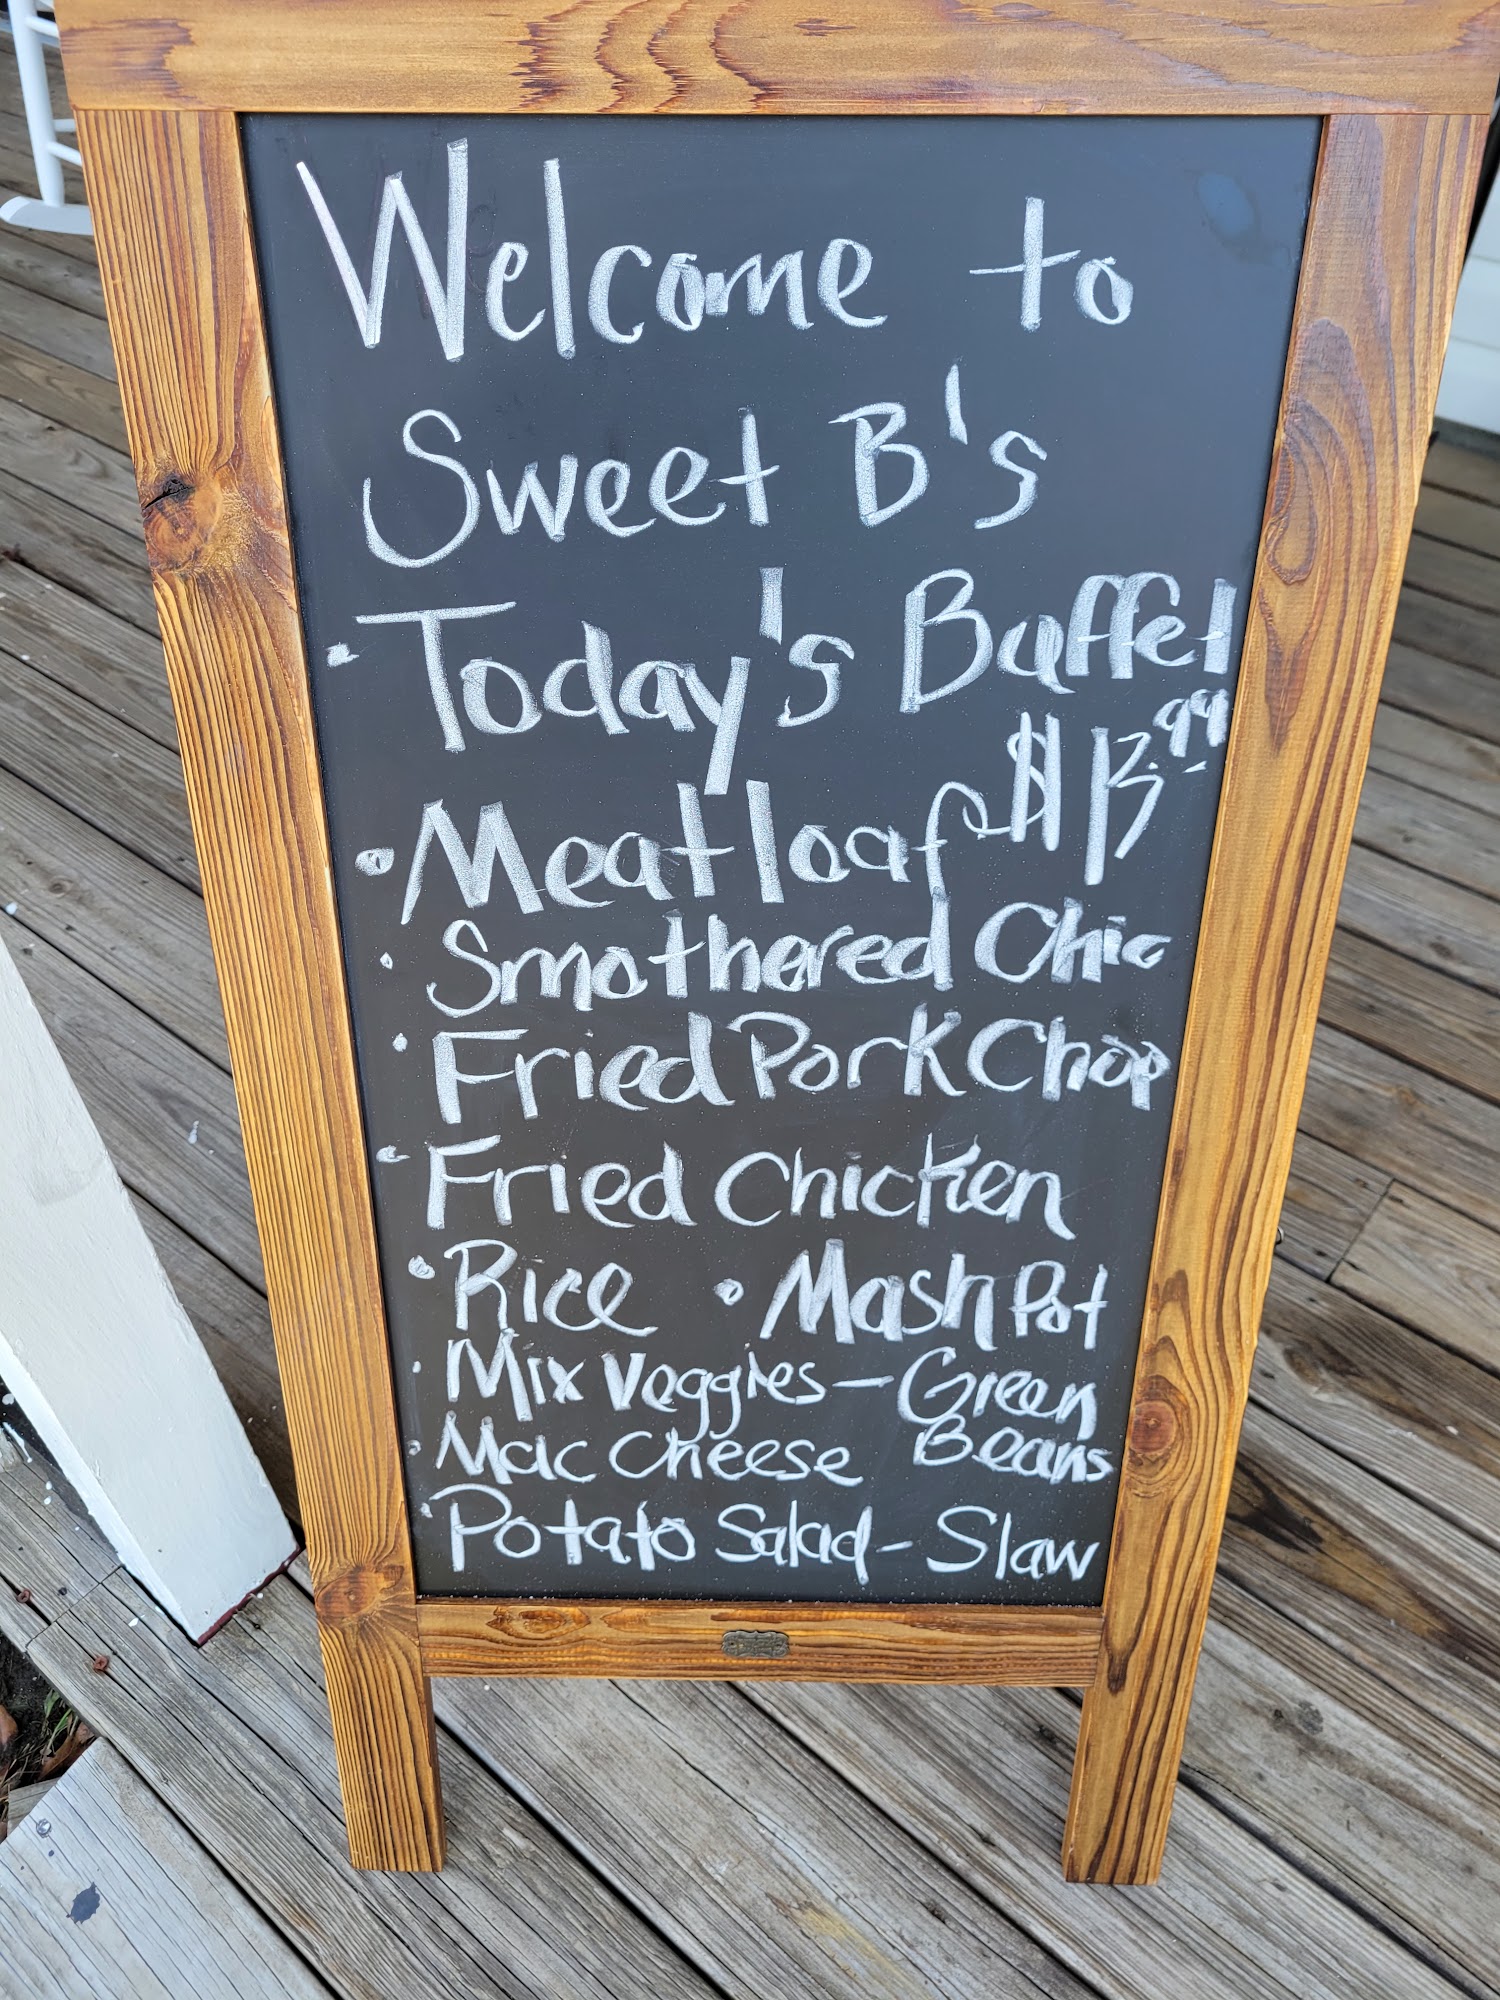 Welcome to
Sweet B's
• Today's Buffet
$13.99
• Meatloaf
• Smothered Chic
• Fried Pork Chop
• Fried Chicken
• Rice • Mash Pot
• Mix Veggies - Green
Beans
• Mac Cheese
• Potato Salad - Slaw